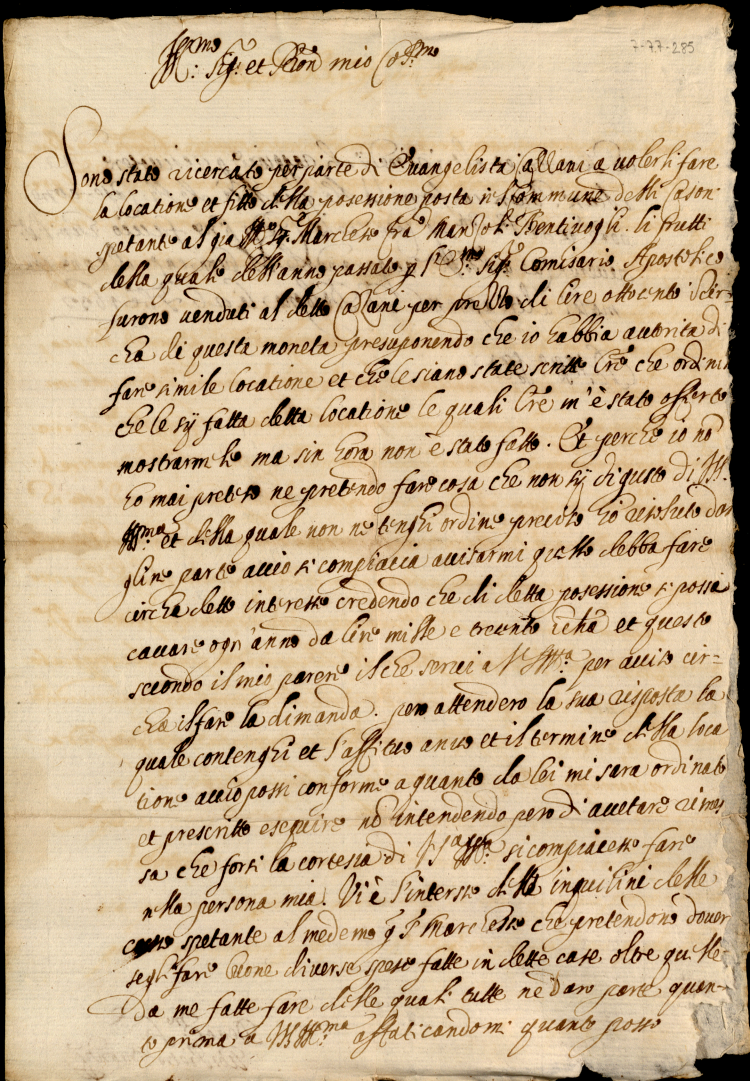 7-77-285
Ill.mo Sig.r et Pron mio Col.mo
Sono stato ricercato per parte di Evangelista Callani a volerli fare
la locatione et fitto della posessione posta in Commune delli Cason
spetante al già Ill. Sr. Marchese Bentivogli. li frutti
della quale dell'anno passato p Sig.r Comisario Apostolico
furono venduti al detto Callani per prezzo di lire ottocento cir-
cha di questa moneta presuponendo che io habbia autorita di
fare simile locatione et che le siano state scritte lre che ordini
che le sij fatta detta locatione le quali lre m'è stato offerto
mostrarmele ma sin hora non è stato fatto. Et perche io no
ho mai preteso ne pretendo fare cosa che non sij di gusto di V.S.
Ill.ma et della quale non ne tenghi ordine preciso ho risoluto dar
gline parte accio si compiaccia avisarmi quello debba fare
circha detto interesse credendo che di detta posessione si possi
cavare ogn'anno da lire mille e trecento et questo
secondo il mio parere il che servi a V.S. Ill.ma per aviso cir=
cha il fare la dimanda. pero attendero la sua risposta la
quale contenghi et l'affitto anuo et il termine della loca
tione accio possi conforme a quanto da lei mi sara ordinato
et prescritto esequire no intendendo pero di accetare rimes
sa che forsi la cortesia di V.S. Ill.ma si compiacesse fare
nella persona mia. Vi è l'interesse delli inquilini delle
case spetante al medemo q. Sr. Marchese che pretendono dover
segli fare buone diverse spese fatte in dette case oltre quelle
da me fatte fare delle quali tutte ne daro parte quan-
to prima a V.S. Ill.ma affaticandomi quanto posso